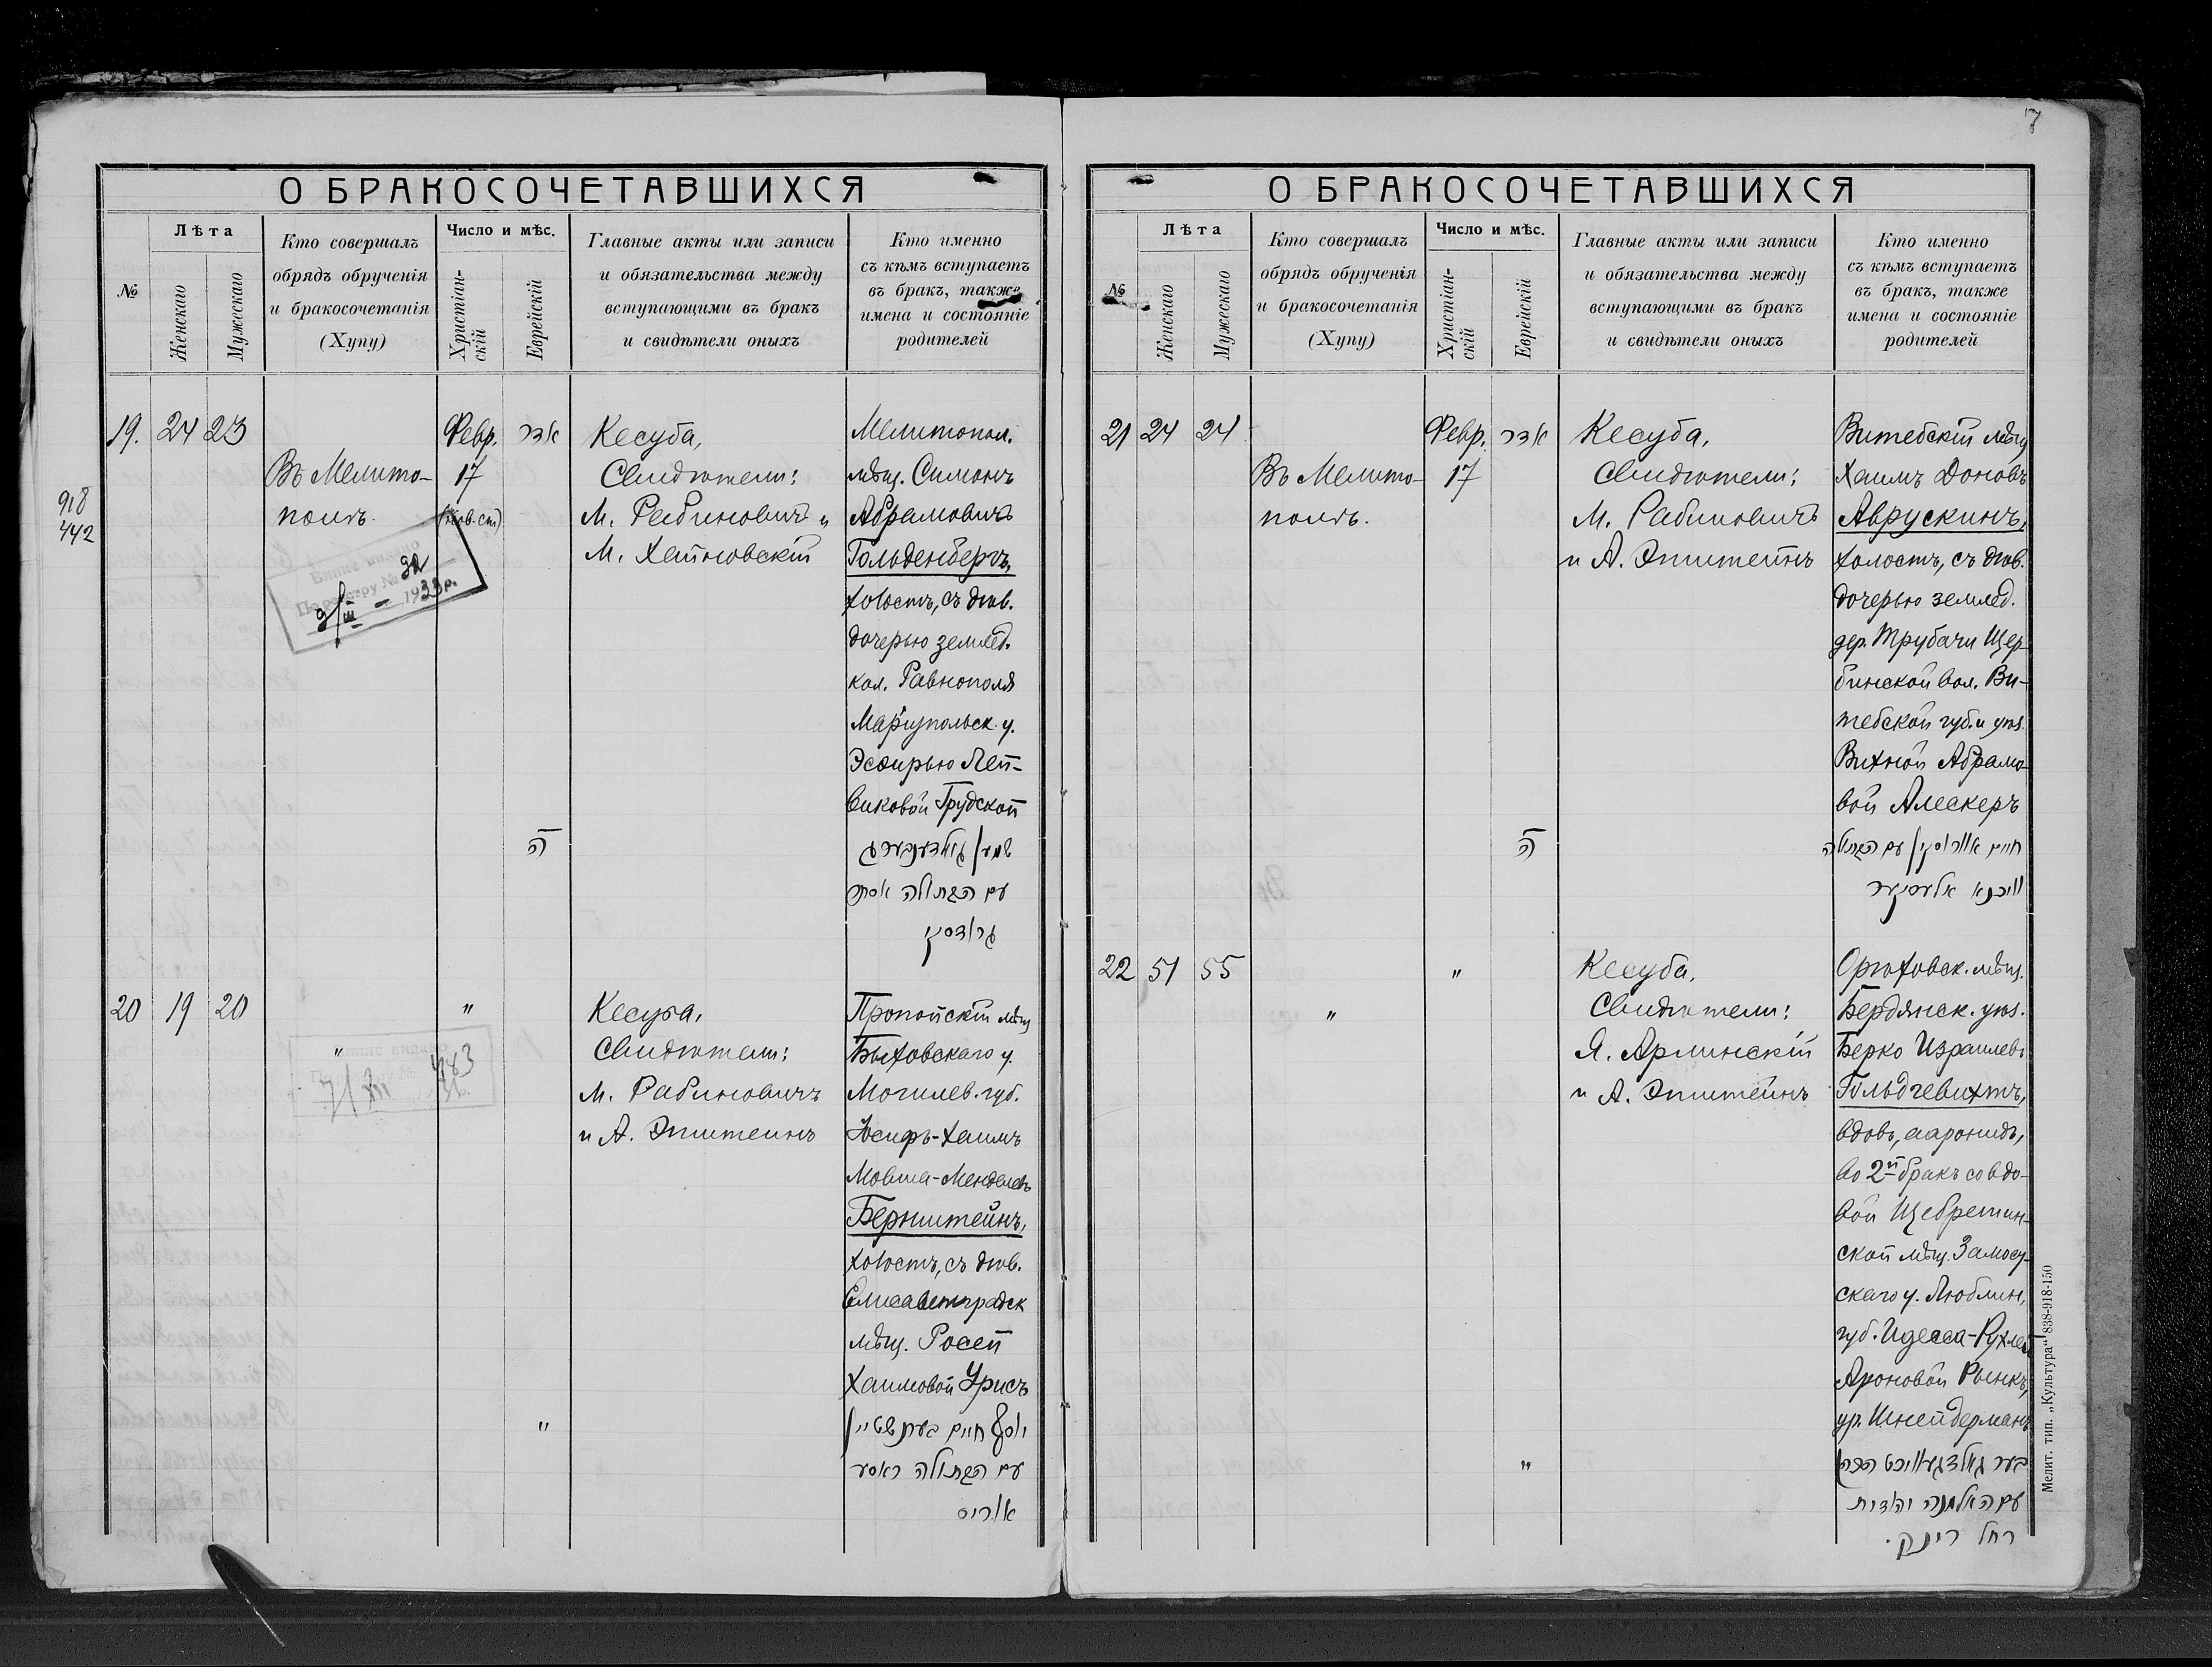 7
О БРАКОСОЧЕТАВШИХСЯ
№
Лѣта
Женскаго
Мужескаго
Кто совершалъ
обрядъ обрученія
и бракосочетанія
(Хупу)
Число и мѣс.
Христіан-
скій
Еврейскій
Главные акты или записи
и обязательства между
вступающими въ бракъ
и свидѣтели оныхъ
Кто именно
съ кѣмъ вступаетъ
въ бракъ, также
имена и состояніе
родителей
918
442
19. 24 23
Въ Мелито-
полѣ.
Февр.
17
(нов. ст)
אדר
ה
Выпис видано
По реєстру № 32
9/III – 1933 р.
Кесуба,
Свидѣтели:
М. Рабиновичъ и
М. Хатновскій
Мелитопол.
мѣщ. Симонъ
Абрамовичъ
Гольденбергъ,
холостъ, съ дѣв.
дочерью землед.
кол. Равнополя
Маріупольск. у.
Эсфирью Леп-
виковой Грудской
גאלדענבערג
עם הבתולה אסתר
20 19 20
"
"
"
7/XII
4183
Кесуба,
Свидѣтели:
М. Рабиновичъ
и А. Эпштеинъ
Пропойскій мѣщ
Быховскаго у.
Могилев. губ.
Іосифъ-Хаимъ
Мовша-Менделевъ
Бернштейнъ,
холостъ, съ дѣв.
Елисаветградск
мѣщ. Росей
Хаимовой Урисъ
יוסף חיים בערנשטיין
עם הבתולה ראסע
אוריס
О БРАКОСОЧЕТАВШИХСЯ
№
Лѣта
Женскаго
Мужескаго
Кто совершалъ
обрядъ обрученія
и бракосочетанія
(Хупу)
Число и мѣс.
Христіан-
скій
Еврейскій
Главные акты или записи
и обязательства между
вступающими въ бракъ
и свидѣтели оныхъ
Кто именно
съ кѣмъ вступаетъ
въ бракъ, также
имена и состояніе
родителей
21 24 24
Въ Мелито-
полѣ.
Февр.
17
אדר
ה
Кесуба,
Свидѣтели:
М. Рабиновичъ
и А. Эпштейнъ
Витебскій мѣщ
Хаимъ Доновъ
Аврускинъ,
холостъ, съ дѣв.
дочерью землед.
дер. Трубачи Щер-
бинской вол. Ви-
тебской губ. и уѣз.
Вихной Абрамо-
вой Алескеръ
חיים אוורוסקין עם הבתולה
וויכנא אלעסקער
22 51 55
"
"
"
Кесуба,
Свидѣтели:
Я. Арлинскій
и А. Эпштейнъ
Орѣховск. мѣщ.
Бердянск. уѣз.
Берко Израилевъ
Гольдгевихтъ,
вдовъ, ааронидъ,
во 2й бракъ со вдо-
вой Щебрешин-
ской мѣщ. Замосц-
скаго у. Люблин.
губ. Идесса-Рухлей
Ароновой Рынкъ,
ур. Шнейдерманъ
בער גאלדגעוויכט הכהן
עם האלמנה יהודית
רחל רינק.
Мелит. тип. „Культура“ 838-918-150